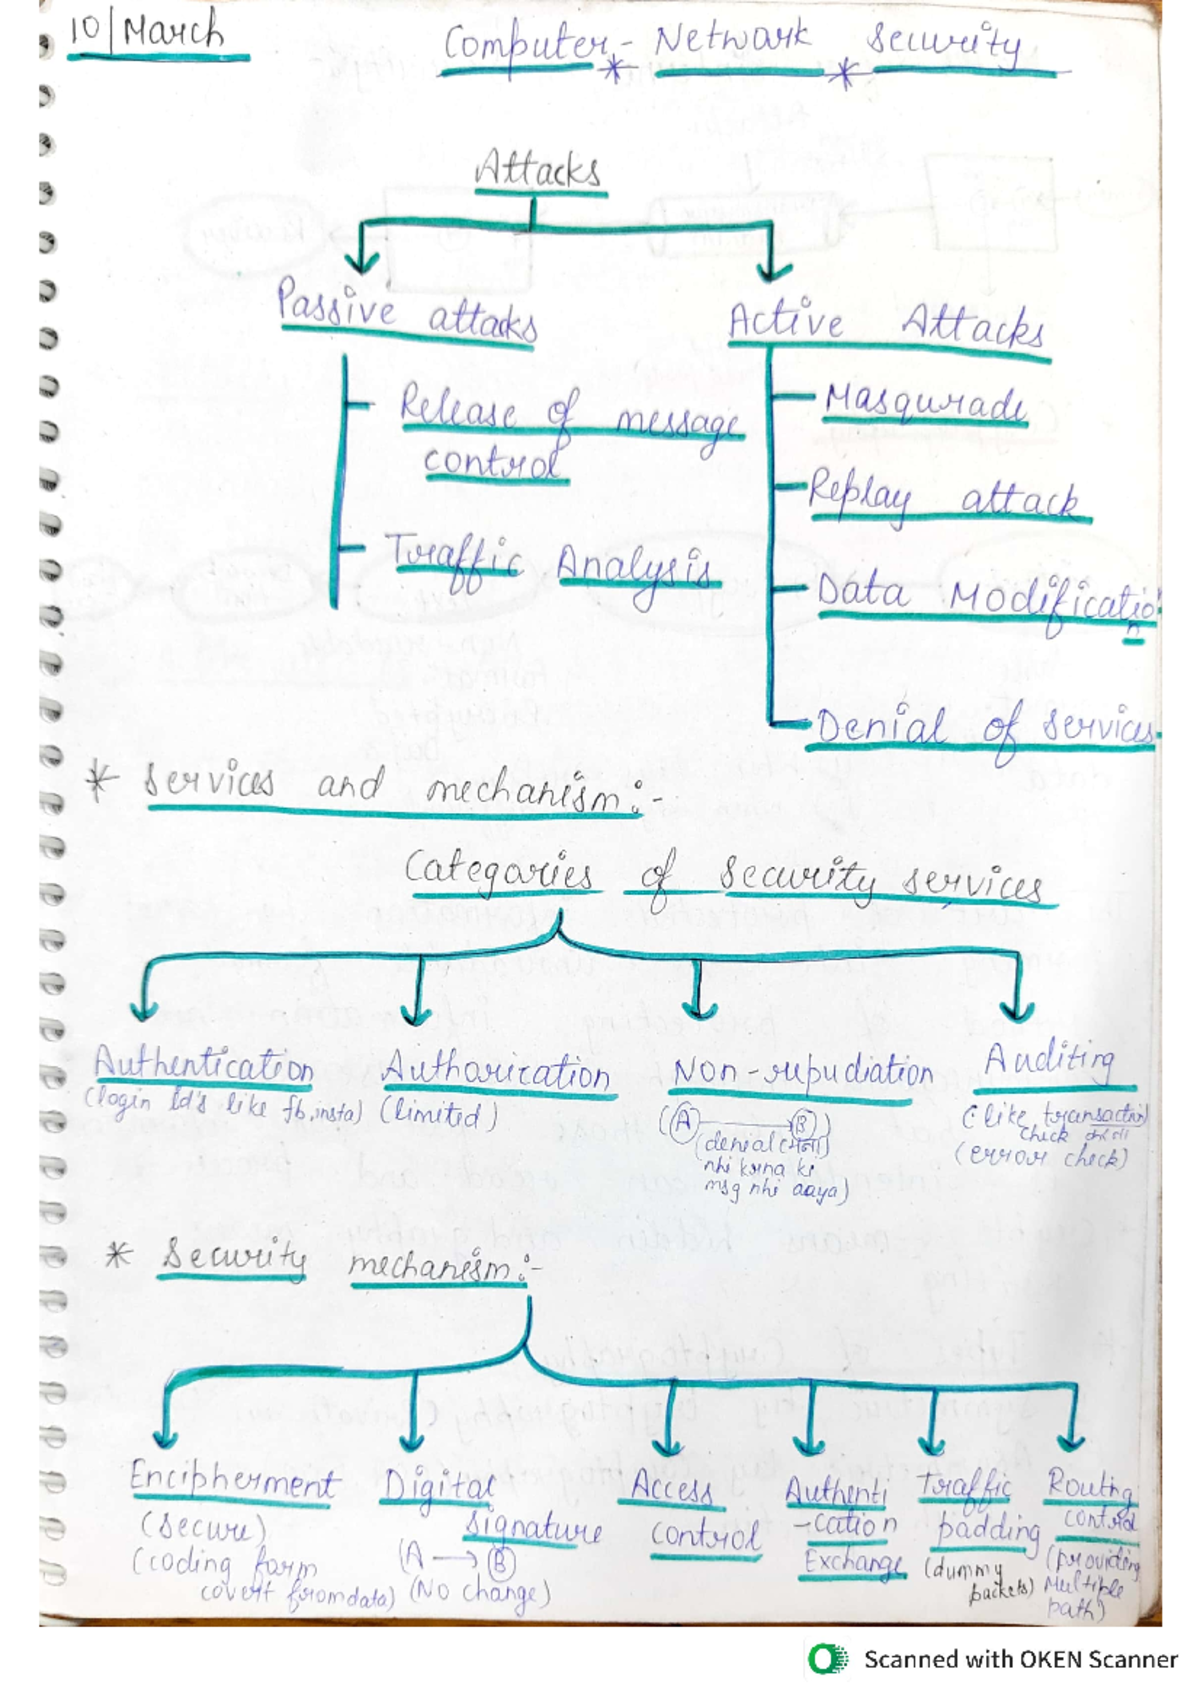 10/March
Computer - Network Security
Attacks
Passive attacks
Active Attacks
Release of message
control
Traffic Analysis
Masqurade
Replay attack
Data Modificatio
n
Denial of services
* Services and mechanism:-
Categories of security services
Authentication
(login Id's like fb, insta)
Authorization
(limited)
Non-repudiation
(A → B)
(denial
nhi krna ki
msg nhi aaya)
Auditing
(like transaction
check
(error check)
* Security mechanism:-
Encipherment
(secure)
(coding form
covert from data)
Digital
signature
(A → B)
(No change)
Access
control
Authenti
-cation
Exchange
Traffic
padding
(dummy
packets)
Routing
control
(providing
Multiple
path)
Scanned with OKEN Scanner